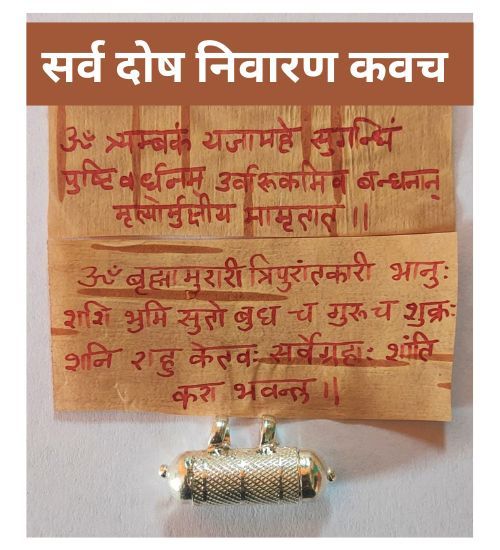 सर्व दोष निवारण कवच
ॐ त्र्यम्बकं यजामहे सुगन्धिं
पुष्टि वर्धनम उर्वारुकमिव बन्धनान्
मृत्योर्मुक्षीय मामृतात् ||
ॐ बृह्मा मुरारी त्रिपुरांतकारी भानुः
शशि भुमि सुतो बुध च गुरु च शुक्रः
शनि राहु केतवः सर्वेग्रहाः शांति
करा भवन्तु ||